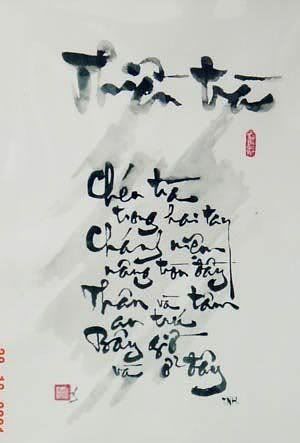 Thiền trà
Chén trà
trong hai tay
Chánh niệm
nâng trọn đầy
Thân và tâm
an trú
Bây giờ
và ở đây
TNH